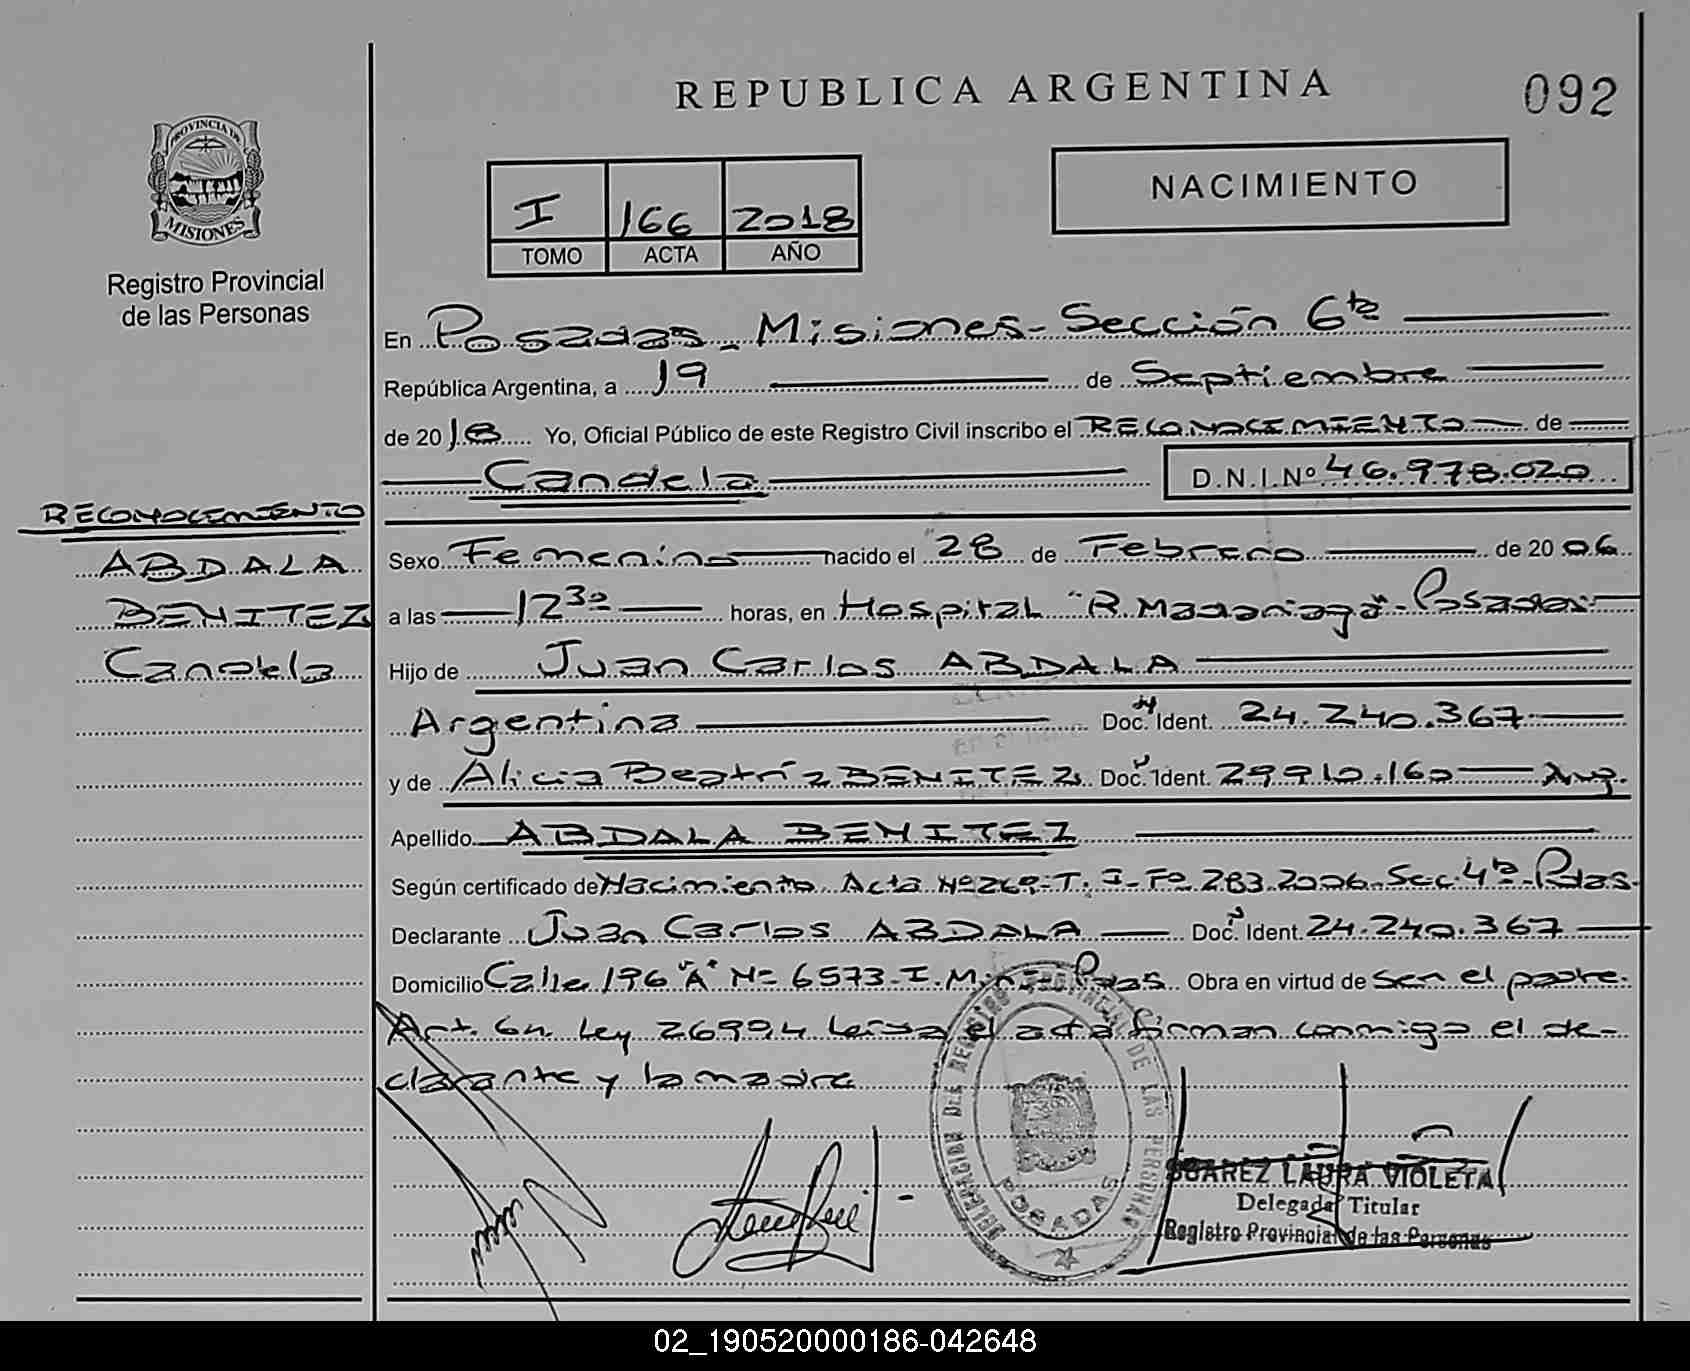 REPUBLICA ARGENTINA
092
PROVINCIA DE
MISIONES
Registro Provincial
de las Personas
I 166 2018
TOMO ACTA AÑO
NACIMIENTO
En Posadas - Misiones - Sección 6ta
República Argentina, a 19 de Septiembre
de 2018 Yo, Oficial Público de este Registro Civil inscribo el RECONOCIMIENTO de
Candela D.N.I.Nº 46.978.020
RECONOCIMIENTO
ABDALA
BENITEZ
Candela
Sexo Femenino nacido el 28 de Febrero de 2006
a las 12 30 horas, en Hospital "R. Madariaga" - Posadas
Hijo de Juan Carlos ABDALA
Argentina Doc. Ident. 24.240.367
y de Alicia Beatríz BENITEZ Doc. Ident. 29.910.160 Arg.
Apellido ABDALA BENITEZ
Según certificado de Nacimiento Acta Nº 269 - T: I - Fº 283. 2006 - Sec. 4ta - Pdas.
Declarante Juan Carlos ABDALA Doc. Ident. 24.240.367
Domicilio Calle 196 "A" Nº 6573 - I. M. Pdas. Obra en virtud de ser el padre.
Art. Ley 26994 el acta firman conmigo el de-
clarante y la madre
DELEGACION DEL REGISTRO PROVINCIAL DE LAS PERSONAS
POSADAS
SUAREZ LAURA VIOLETA
Delegada Titular
Registro Provincial de las Personas
02_190520000186-042648